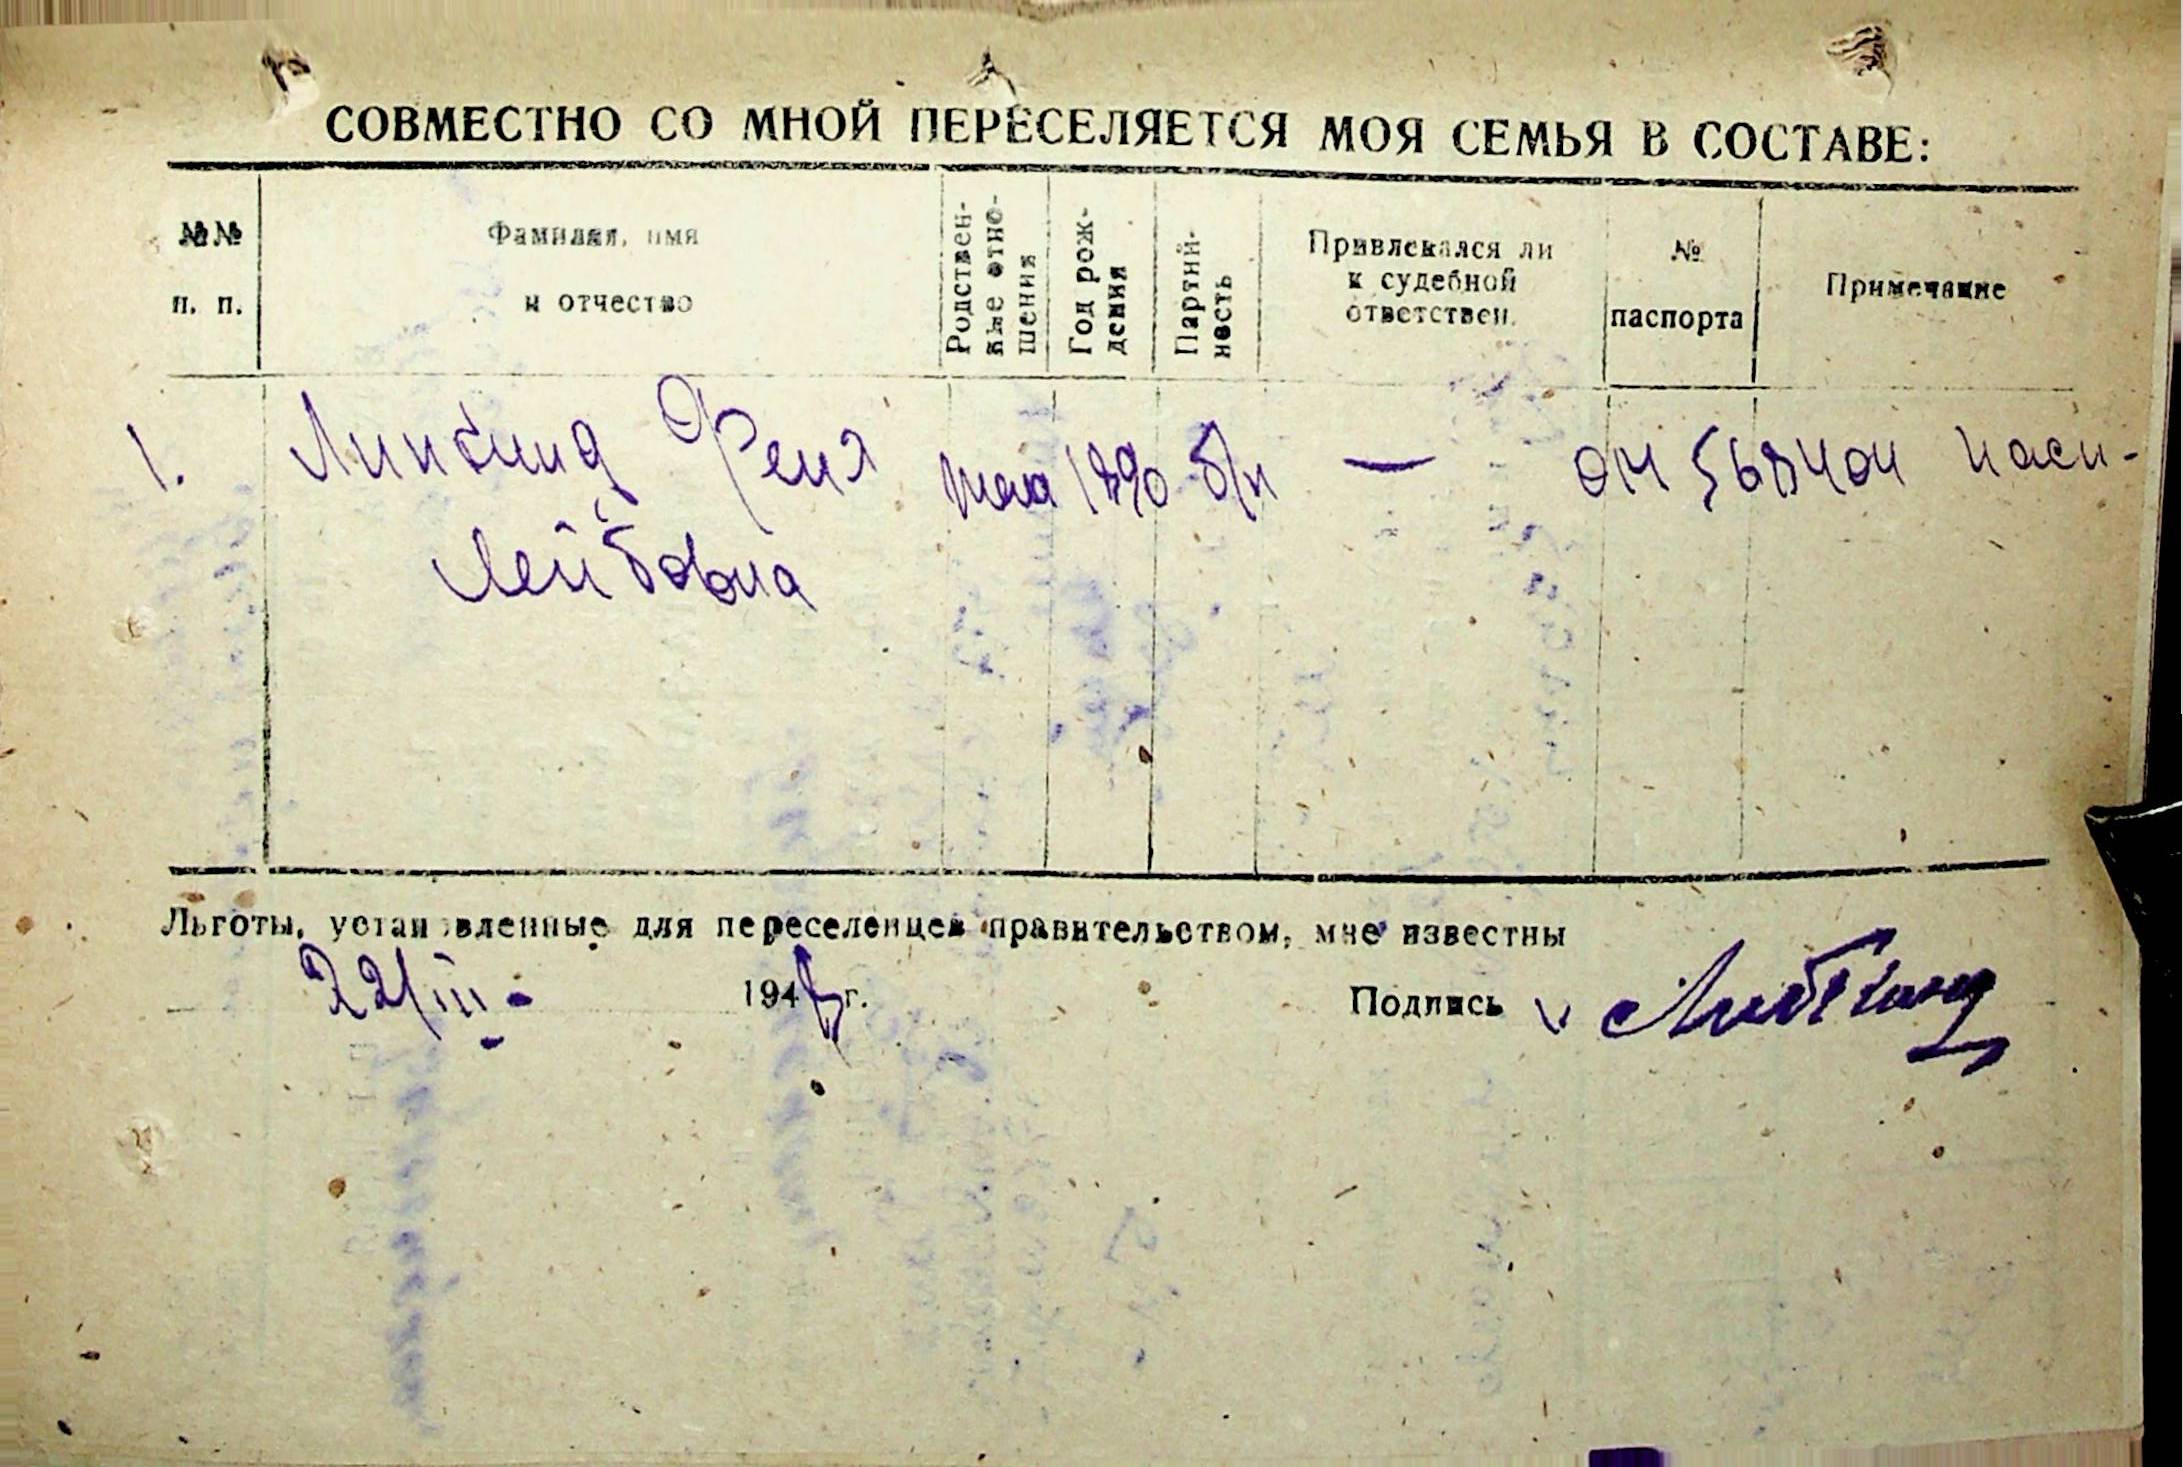 СОВМЕСТНО СО МНОЙ ПЕРЕСЕЛЯЕТСЯ МОЯ СЕМЬЯ В СОСТАВЕ:
№№ п. п.
Фамилия, имя и отчество
Родственные отношения
Год рождения
Партийность
Привлекался ли к судебной ответствен.
№ паспорта
Примечание
1. Фейга 1890 б/п —
Лейбовна
Льготы, установленные для переселенцев правительством, мне известны
22/III- 194 г. Подпись